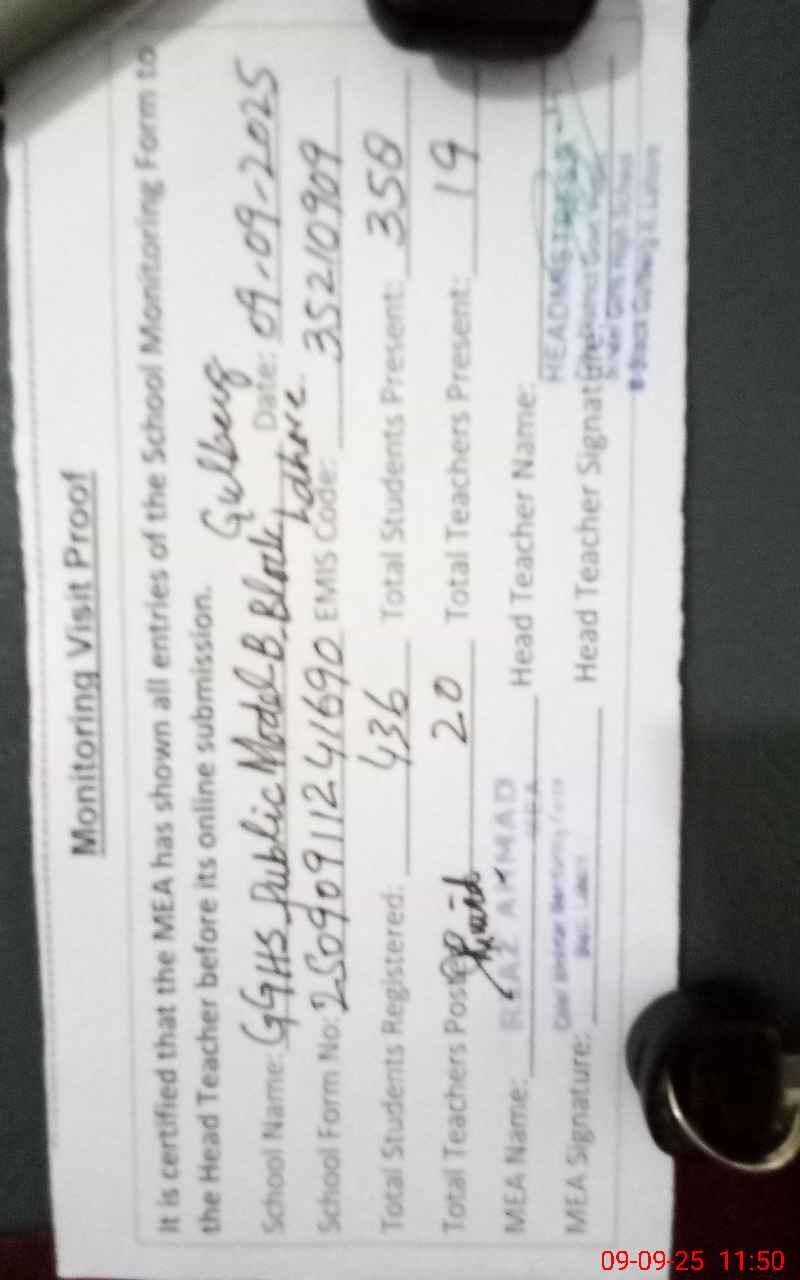 Monitoring Visit Proof
It is certified that the MEA has shown all entries of the School Monitoring Form to
the Head Teacher before its online submission.
School Name: GGHS Public Model B.Block Gulberg Lahore Date: 09-09-2025
School Form No: 25090911241690 EMIS Code: 35210909
Total Students Registered: 436 Total Students Present: 358
Total Teachers Posted: 20 Total Teachers Present: 19
MEA Name: RIAZ AHMAD Head Teacher Name:
HEADMISTRESS
MEA
MEA Signature: Head Teacher Signature:
Model Girls High School
B-Block Gulberg II, Lahore
09-09-25 11:50